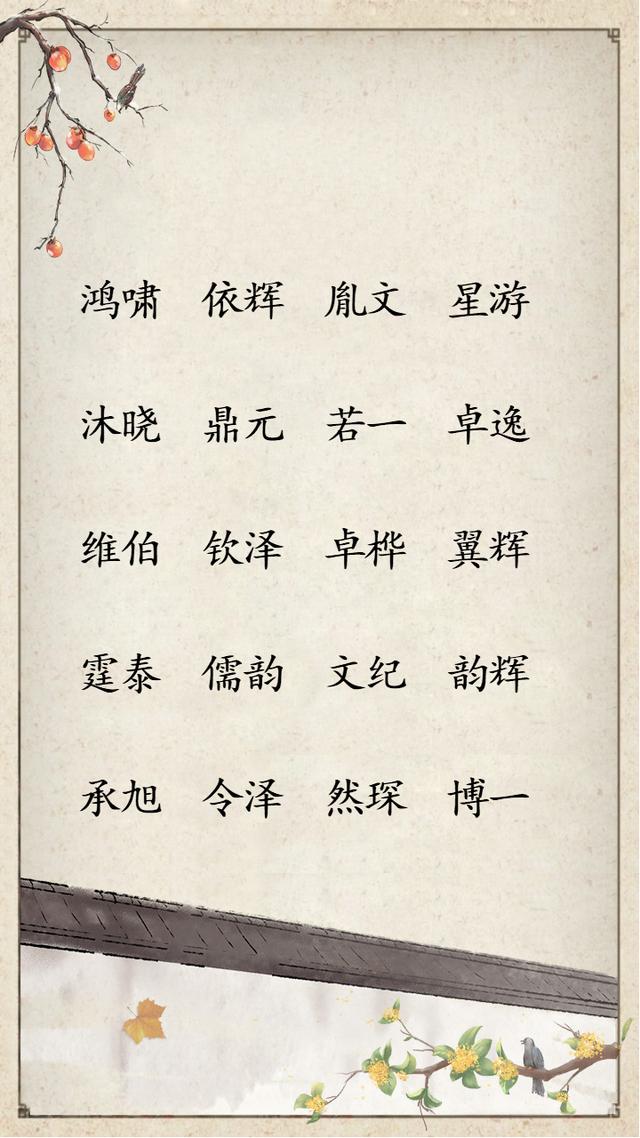 鸿啸 依辉 胤文 星游
沐晓 鼎元 若一 卓逸
维伯 钦泽 卓桦 翼辉
霆泰 儒韵 文纪 韵辉
承旭 令泽 然琛 博一